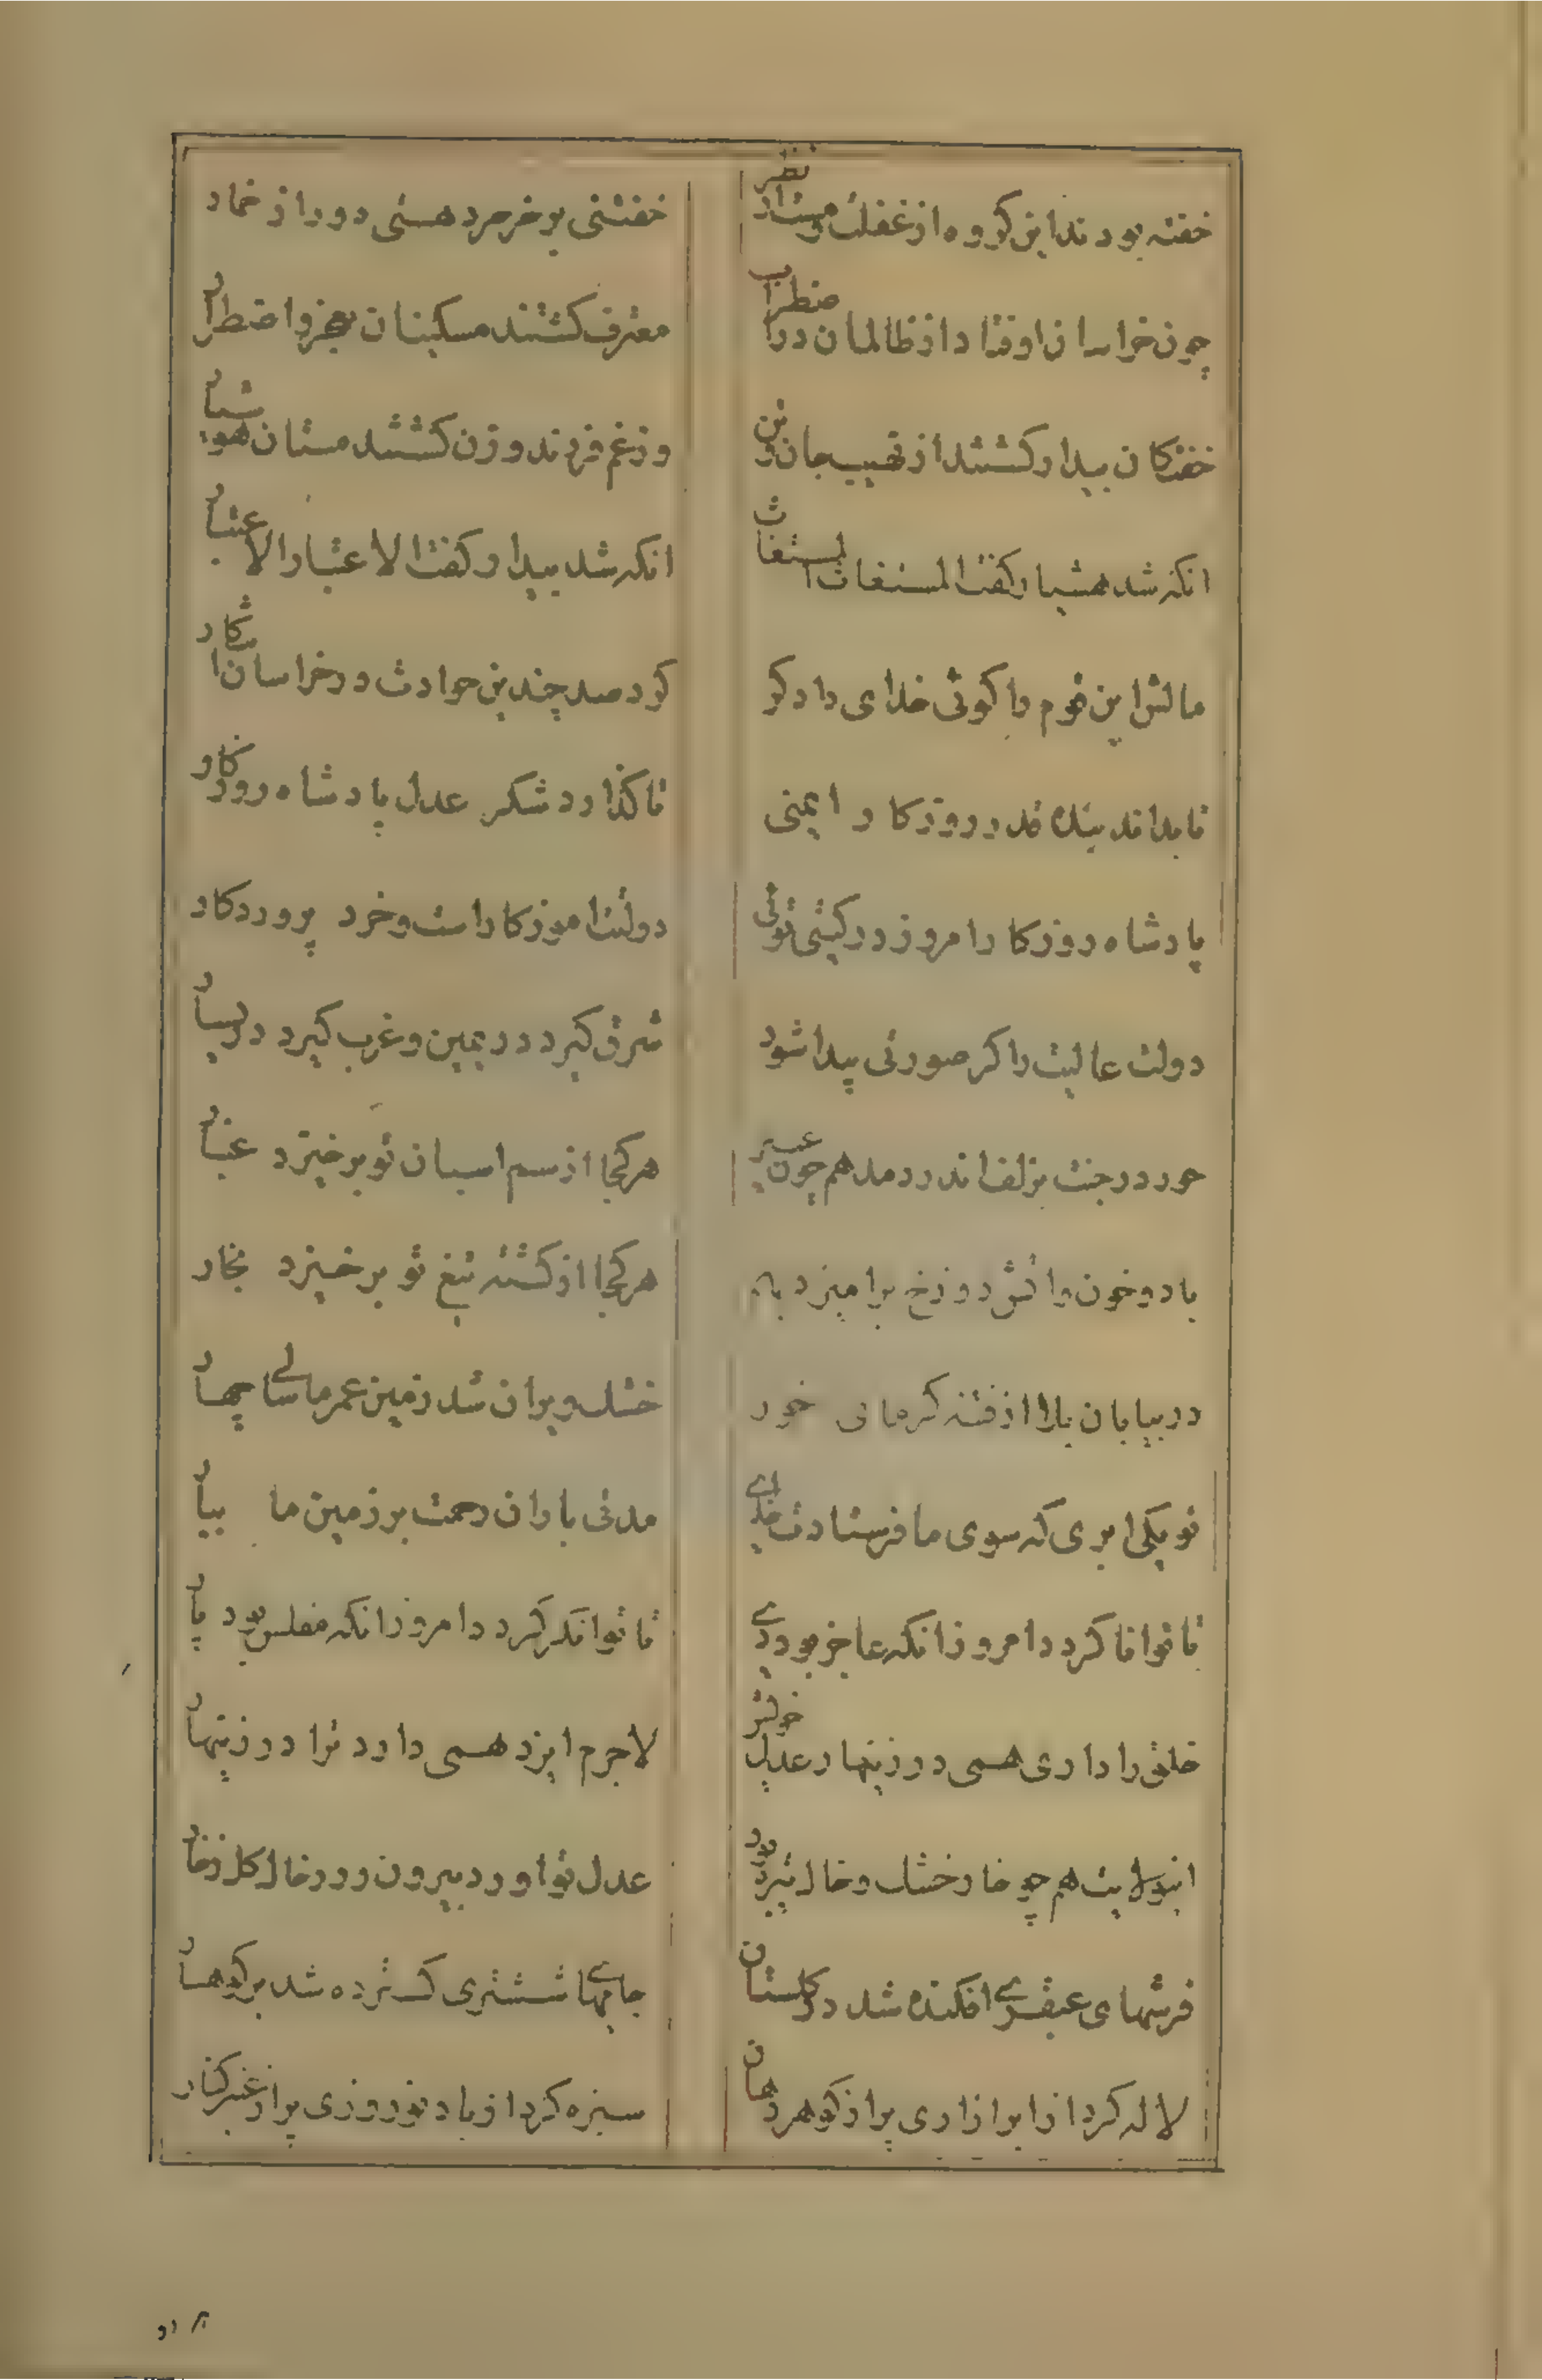 خفته بودند این کروه از غفلت و مست از نظر
خفتنی بر خر مرد هستی دور از خمار
چون خراسان اوفتاد از ظالمان در اضطراب
معترف کشتند مسکینان بعجز و اضطرار
خفتکان بیدار کشتند از نهیب جان و تن
وز غم فرزند و زن کشتند مستان هوشیار
انکه شد هشیار کفت المستغاث المستغاث
انکه شد بیدار و کفت الاعتبار الاعتبار
مالش این قوم را کوئی خدای دادکر
کرد صد چندین حوادث در خراسان اشکار
تا بداند بنده قدر روزکار ایمنی
تا کذارد شکر عدل پادشاه روزکار
پادشاه روزکار امروز در کیتی توئی
دولتت اموزکار است و خرد پروردکار
دولت عالیت را کر صورتی پیدا شود
شرق کیرد در یمین و غرب کیرد در یسار
حور در جنت بزلف اندر دمد هم چون عبیر
هر کجا از سم اسبان تو برخیزد غبار
باد و خون و اتش دوزخ برامیزد بهم
هر کجا از کشته تیغ تو برخیزد بخار
در بیابان بلا از فتنه کرمای خور
خشک و ویران شد زمین عمر ما سالی چهار
تو یکی ابری که سوی ما فرستادت خدای
مدتی باران رحمت بر زمین ما ببار
تا توانا کردد امروز انکه عاجز بود دی
تا توانکر کردد امروز انکه مفلس بود پار
خلق را داری همی در زینهار عدل خویش
لاجرم ایزد همی دارد ترا در زینهار
این ولایت هم چو خار خشک و خاک تیره بود
عدل تو اورد بیرون زر ز خاک کل ز خار
فرشهای عبقری افکنده شد در کلستان
جامهای ششتری کسترده شد بر کوهسار
لاله کرد از ابر ازاری پر از کوهر دهان
سبزه کرد از باد نوروزی پر از عنبر کنار